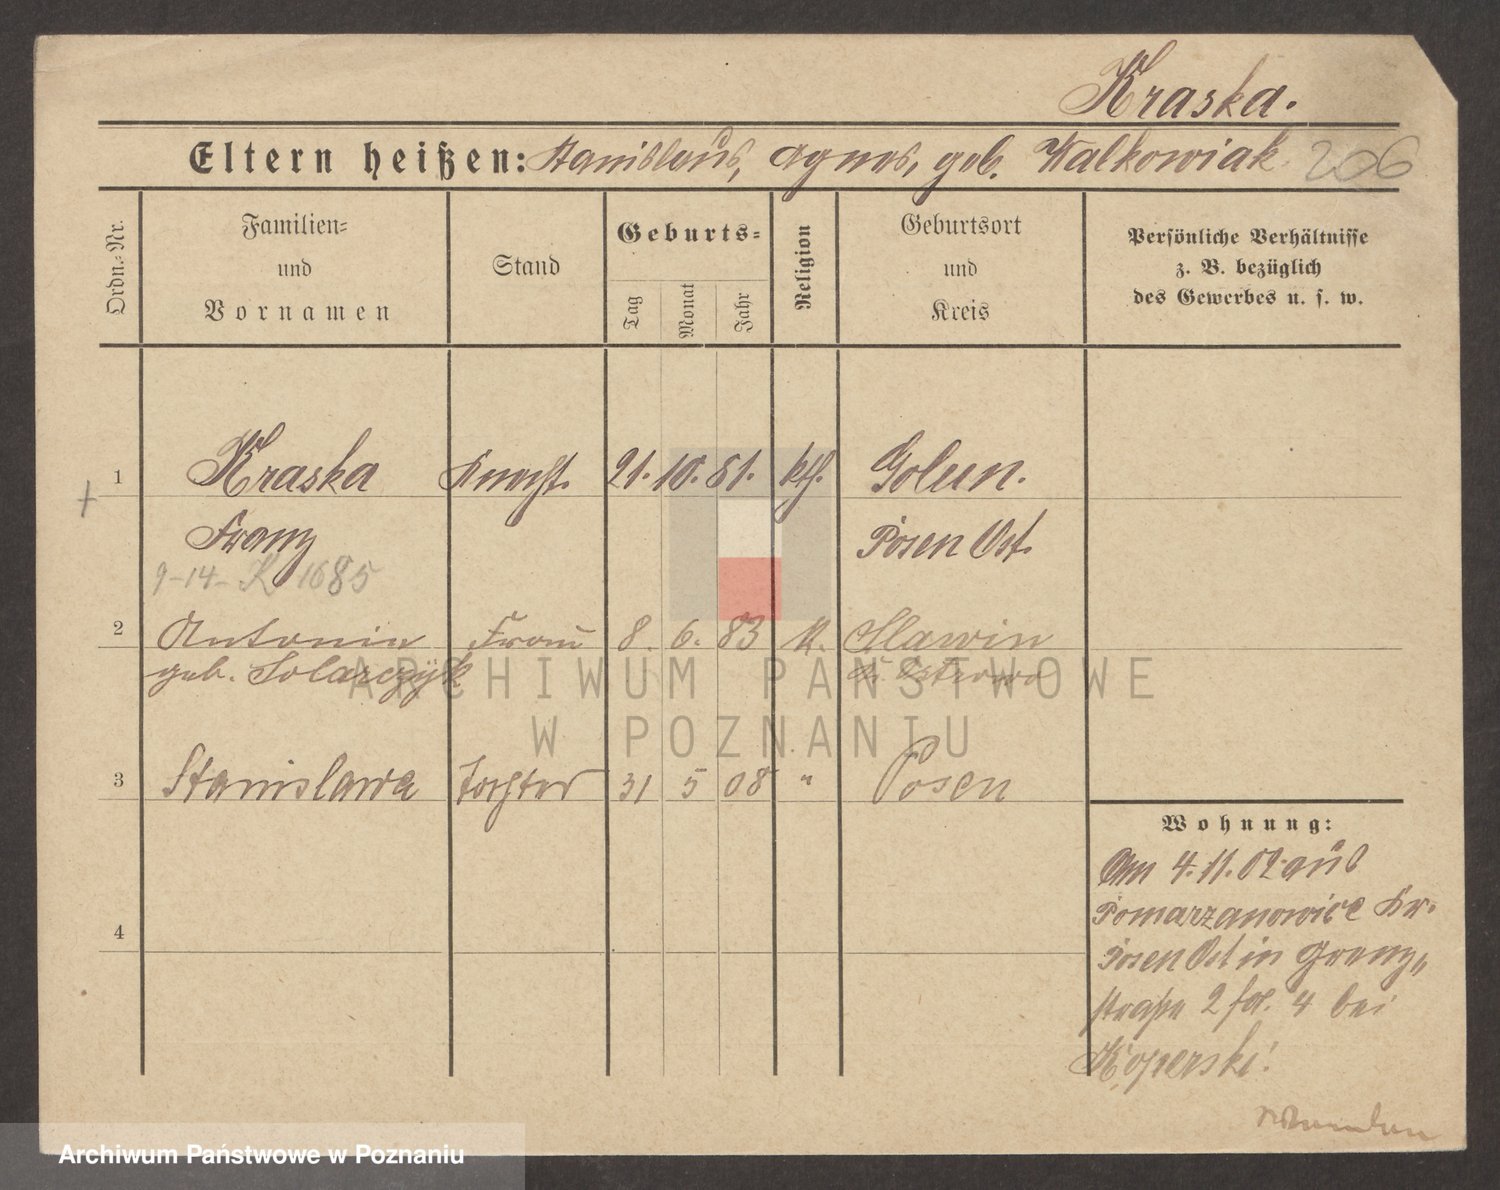 Kraska.
Eltern heißen: Stanislaus, Agnes, geb. Walkowiak 206
Ordn.-Nr.
Familien- und Vornamen
Stand
Geburts-
Tag
Monat
Jahr
Religion
Geburtsort und Kreis
Persönliche Verhältnisse
z. B. bezüglich
des Gewerbes u. s. w.
1 Kraska Knecht. 21. 10. 81. kth. Golun.
+
Franz Posen Ost.
9-14- K 1685
2 Antonin Frau 8. 6. 83 K. Slawin
geb. Solarczyk Kr. Ostrowo
3 Stanislawa Tochter 31 5 08 " Posen
4
Wohnung:
Am 4.11.02 aus
Pomarzanowice Kr.
Posen Ost in Grenz„
straße 2 fol. 4 bei
Koperski!
ARCHIWUM PAŃSTWOWE
W POZNANIU
Archiwum Państwowe w Poznaniu